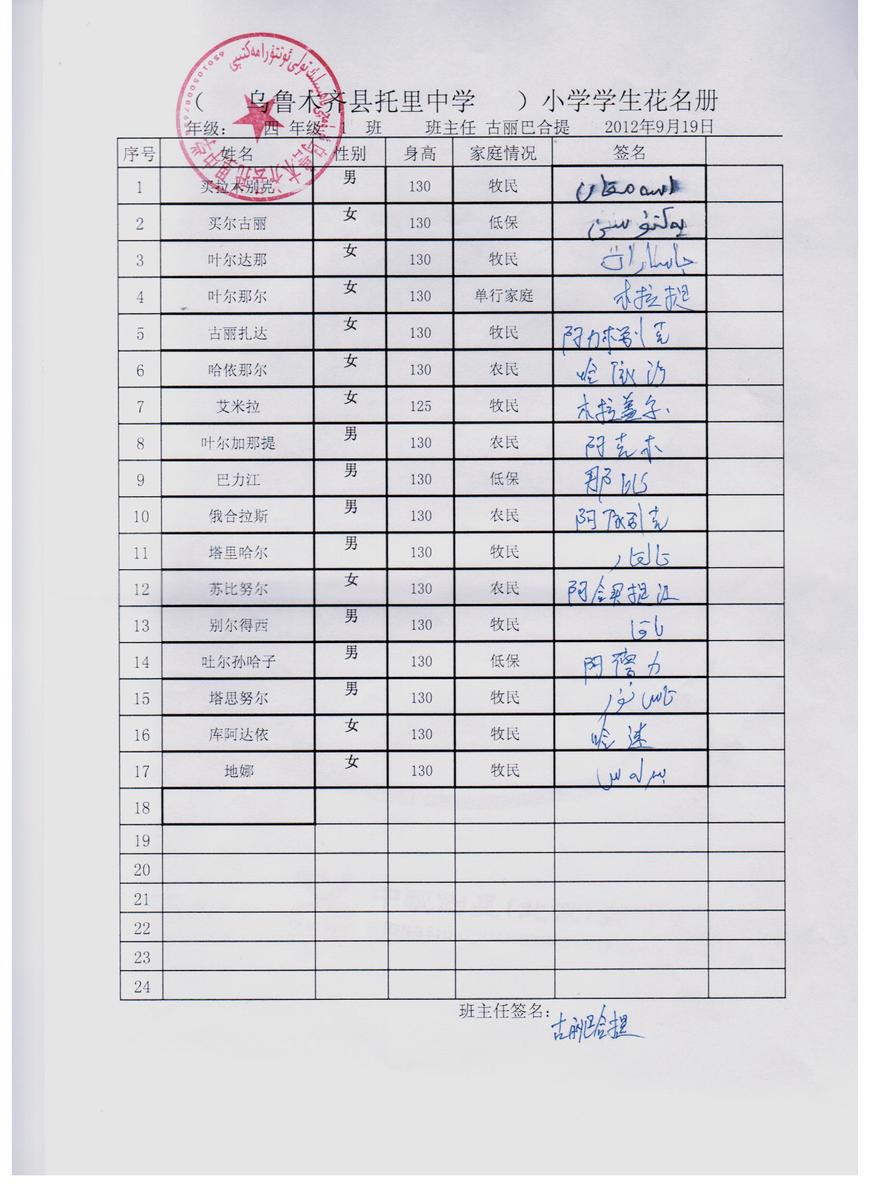 ( 乌鲁木齐县托里中学 ) 小学学生花名册
年级: 四 年级 1 班 班主任 古丽巴合提 2012年9月19日
序号 姓名 性别 身高 家庭情况 签名
1 买拉木别克 男 130 牧民
2 买尔古丽 女 130 低保
3 叶尔达那 女 130 牧民
4 叶尔那尔 女 130 单行家庭 木拉提
5 古丽扎达 女 130 牧民
6 哈依那尔 女 130 农民
7 艾米拉 女 125 牧民 木拉盖尔
8 叶尔加那提 男 130 农民 阿克木
9 巴力江 男 130 低保
10 俄合拉斯 男 130 农民
11 塔里哈尔 男 130 牧民
12 苏比努尔 女 130 农民
13 别尔得西 男 130 牧民
14 吐尔孙哈子 男 130 低保
15 塔思努尔 男 130 牧民
16 库阿达依 女 130 牧民
17 地娜 女 130 牧民
18
19
20
21
22
23
24
班主任签名: 古丽巴合提